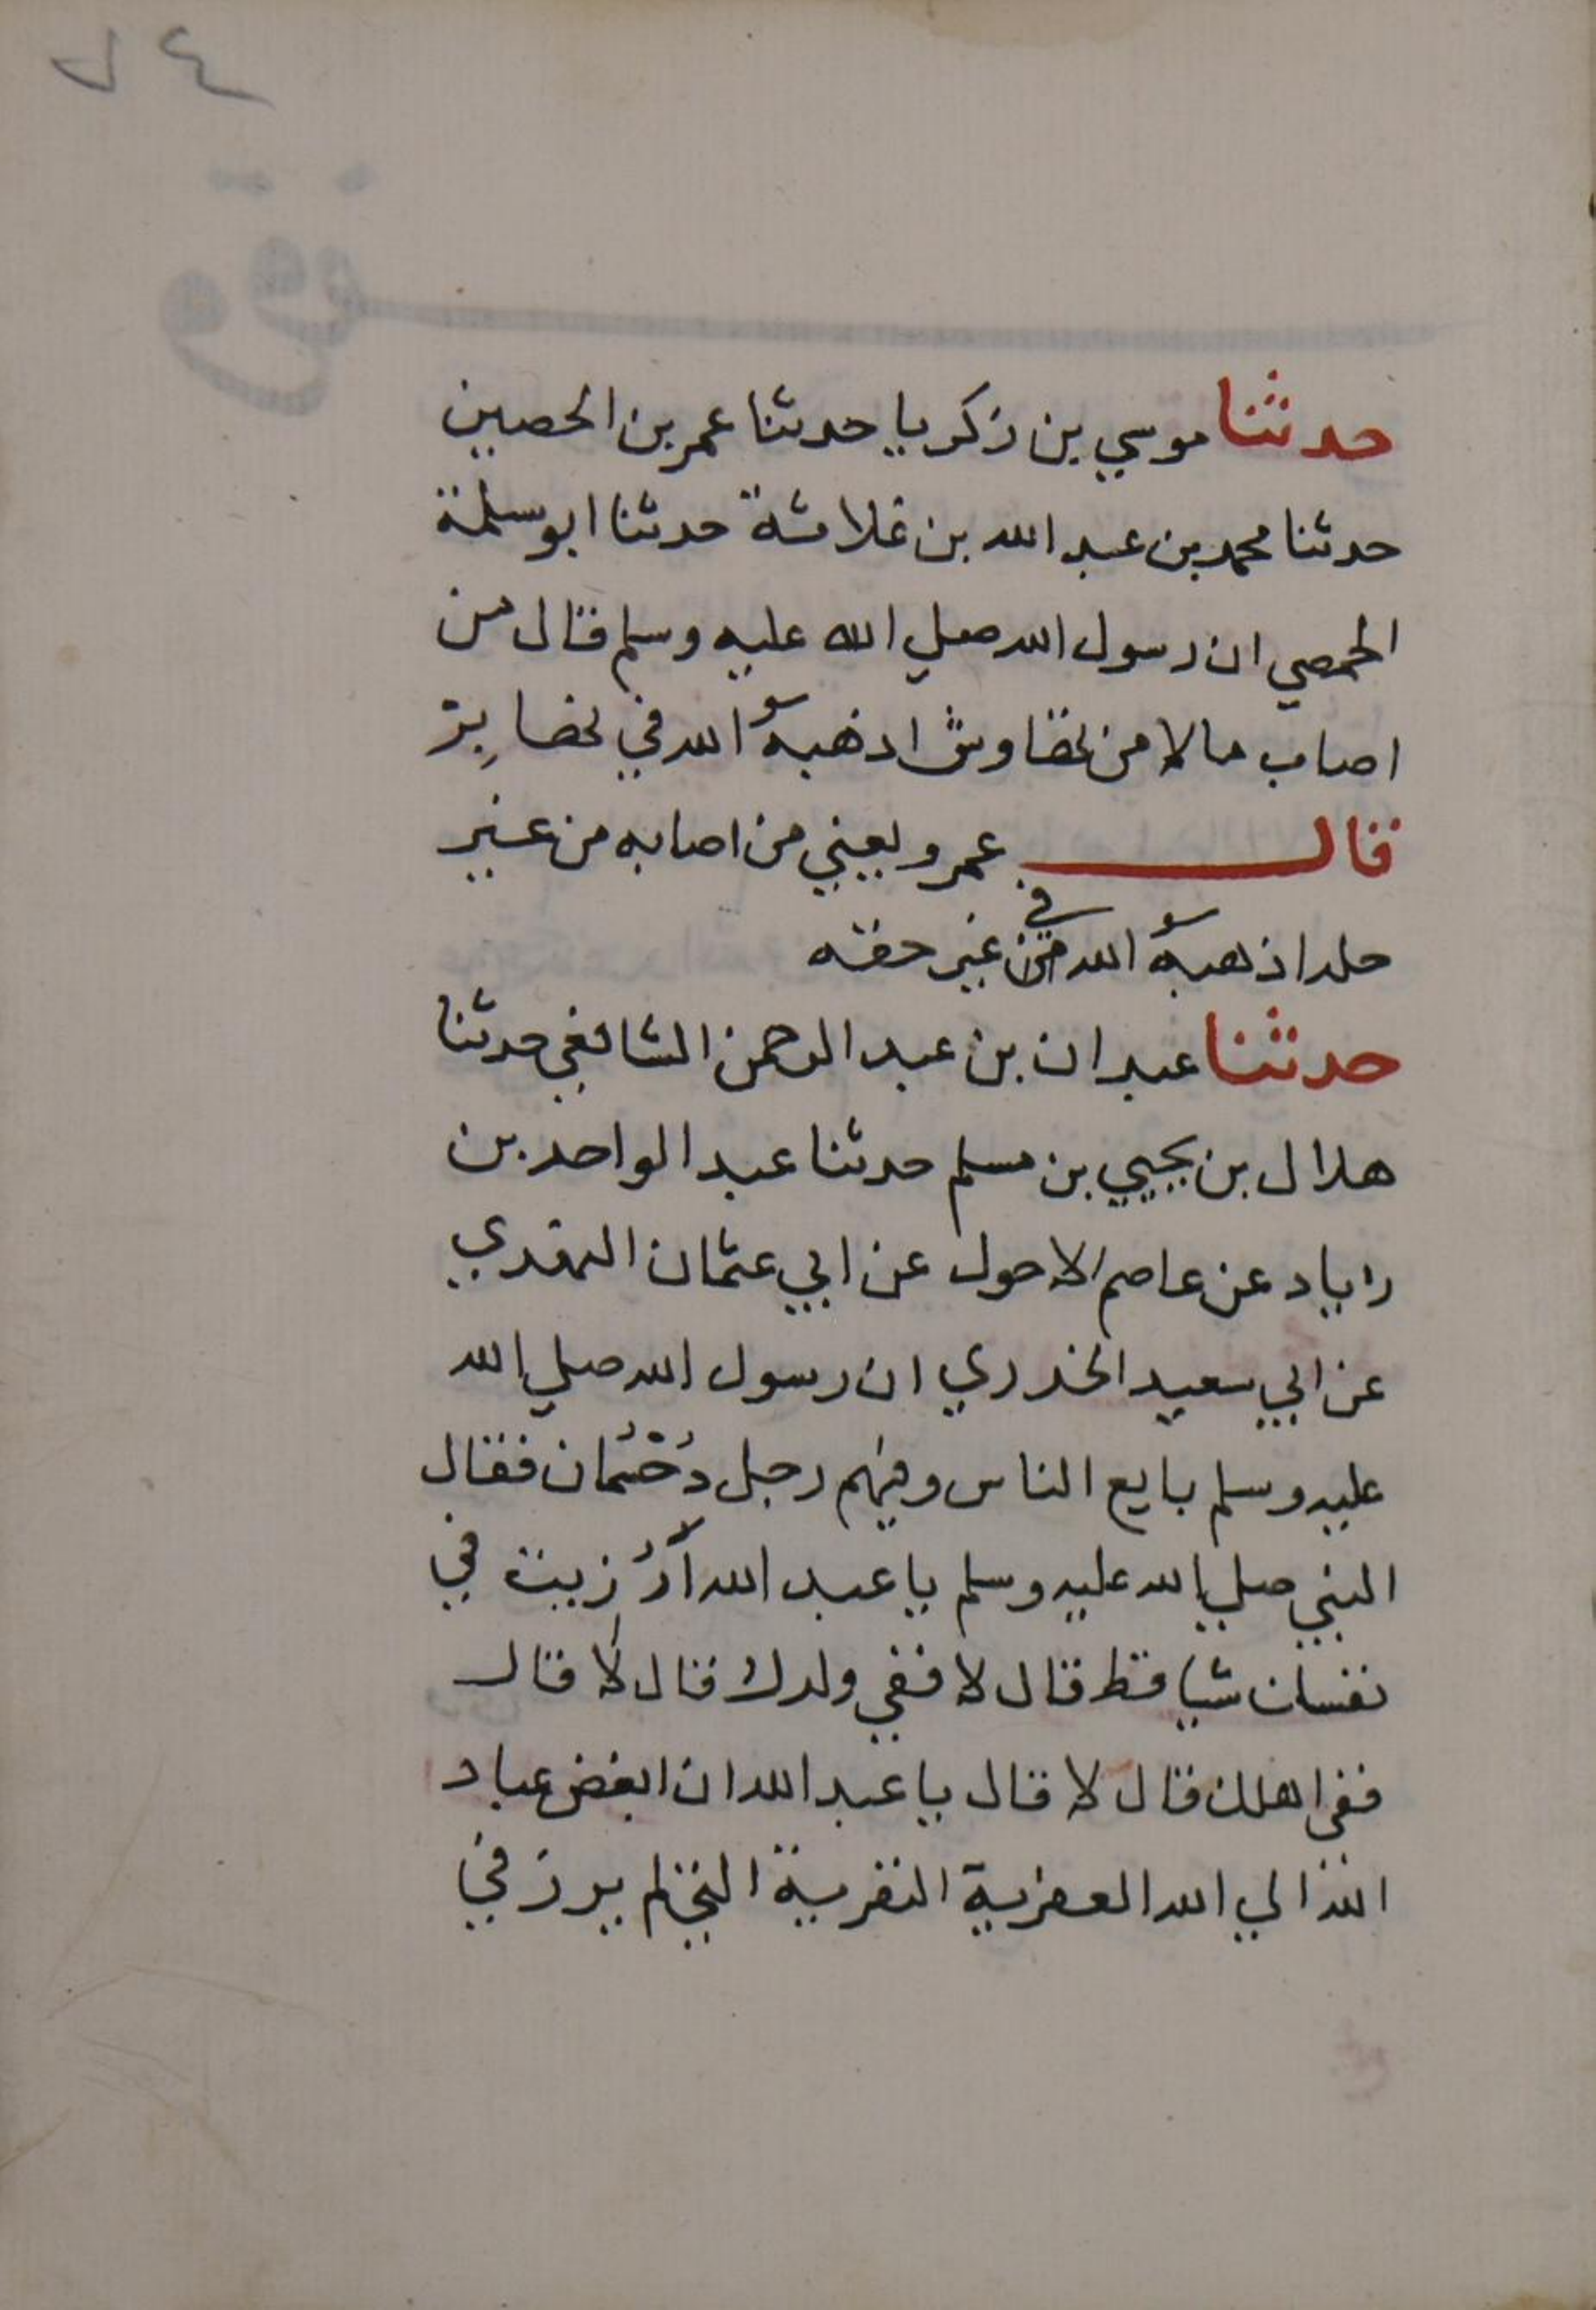 ٢٤
حدثنا موسي بن زكريا حدثنا عمر بن الحصين
حدثنا محمد بن عبد الله بن علاثة حدثنا ابو سلمة
الحمصي ان رسول الله صلي الله عليه وسلم قال من
اصاب مالا من نهاوش اذهبه الله في نهابر
قال عمرو يعني من اصابه من غير
حله اذهبه الله في غير حقه
حدثنا عبدان بن عبد الرحمن الشافعي حدثنا
هلال بن يحيي بن مسلم حدثنا عبد الواحد بن
زياد عن عاصم الاحول عن ابي عثمان النهدي
عن ابي سعيد الخدري ان رسول الله صلي الله
عليه وسلم بايع الناس وفيهم رجل دُحْسُمان فقال
النبي صلي الله عليه وسلم يا عبد الله أرُزيت في
نفسك شيا قط قال لا ففي ولدك قال لا قال
ففي اهلك قال لا قال يا عبد الله ان ابغض عباد
الله الي الله العفرية النفرية الذي لم يرز في